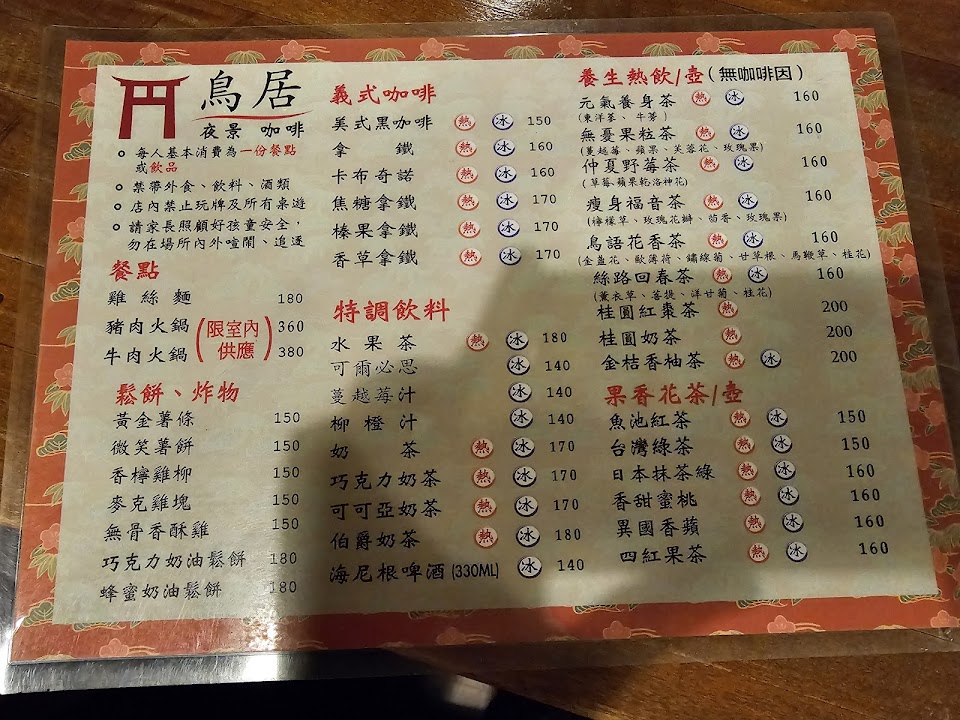 鳥居
夜景 咖啡
每人基本消費為一份餐點
或飲品
禁帶外食、飲料、酒類
店內禁止玩牌及所有桌遊
請家長照顧好孩童安全,
勿在場所內外喧鬧、追逐
餐點
雞絲麵 180
豬肉火鍋 (限室內 360
牛肉火鍋 供應) 380
鬆餅、炸物
黃金薯條 150
微笑薯餅 150
香檸雞柳 150
麥克雞塊 150
無骨香酥雞 150
巧克力奶油鬆餅 180
蜂蜜奶油鬆餅 180
義式咖啡
美式黑咖啡 熱 冰 150
拿鐵 熱 冰 160
卡布奇諾 熱 冰 160
焦糖拿鐵 熱 冰 170
榛果拿鐵 熱 冰 170
香草拿鐵 熱 冰 170
特調飲料
水果茶 熱 冰 180
可爾必思 冰 140
蔓越莓汁 冰 140
柳橙汁 冰 140
奶茶 熱 冰 170
巧克力奶茶 熱 冰 170
可可亞奶茶 熱 冰 170
伯爵奶茶 熱 冰 180
海尼根啤酒(330ML) 冰 140
養生熱飲/壺(無咖啡因)
元氣養身茶 熱 冰 160
(東洋蔘、牛蒡)
無憂果粒茶 熱 冰 160
(蔓越莓、蘋果、芙蓉花、玫瑰果)
仲夏野莓茶 熱 冰 160
(草莓.蘋果乾.洛神花)
瘦身福音茶 熱 冰 160
(檸檬草、玫瑰花瓣、茴香、玫瑰果)
鳥語花香茶 熱 冰 160
(金盞花、歐薄荷、鏽線菊、甘草根、馬鞭草、桂花)
絲路回春茶 熱 冰 160
(薰衣草、菩提、洋甘菊、桂花)
桂圓紅棗茶 熱 200
桂圓奶茶 熱 200
金桔香柚茶 熱 冰 200
果香花茶/壺
魚池紅茶 熱 冰 150
台灣綠茶 熱 冰 150
日本抹茶綠 熱 冰 160
香甜蜜桃 熱 冰 160
異國香蘋 熱 冰 160
四紅果茶 熱 冰 160